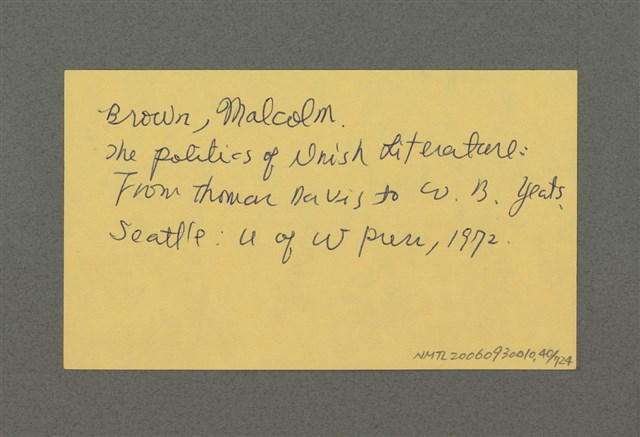 Brown, Malcolm.
The Politics of Irish Literature:
From Thomas Davis to W. B. Yeats.
Seattle: U of W Press, 1972.
NMTL20060930010,40/724